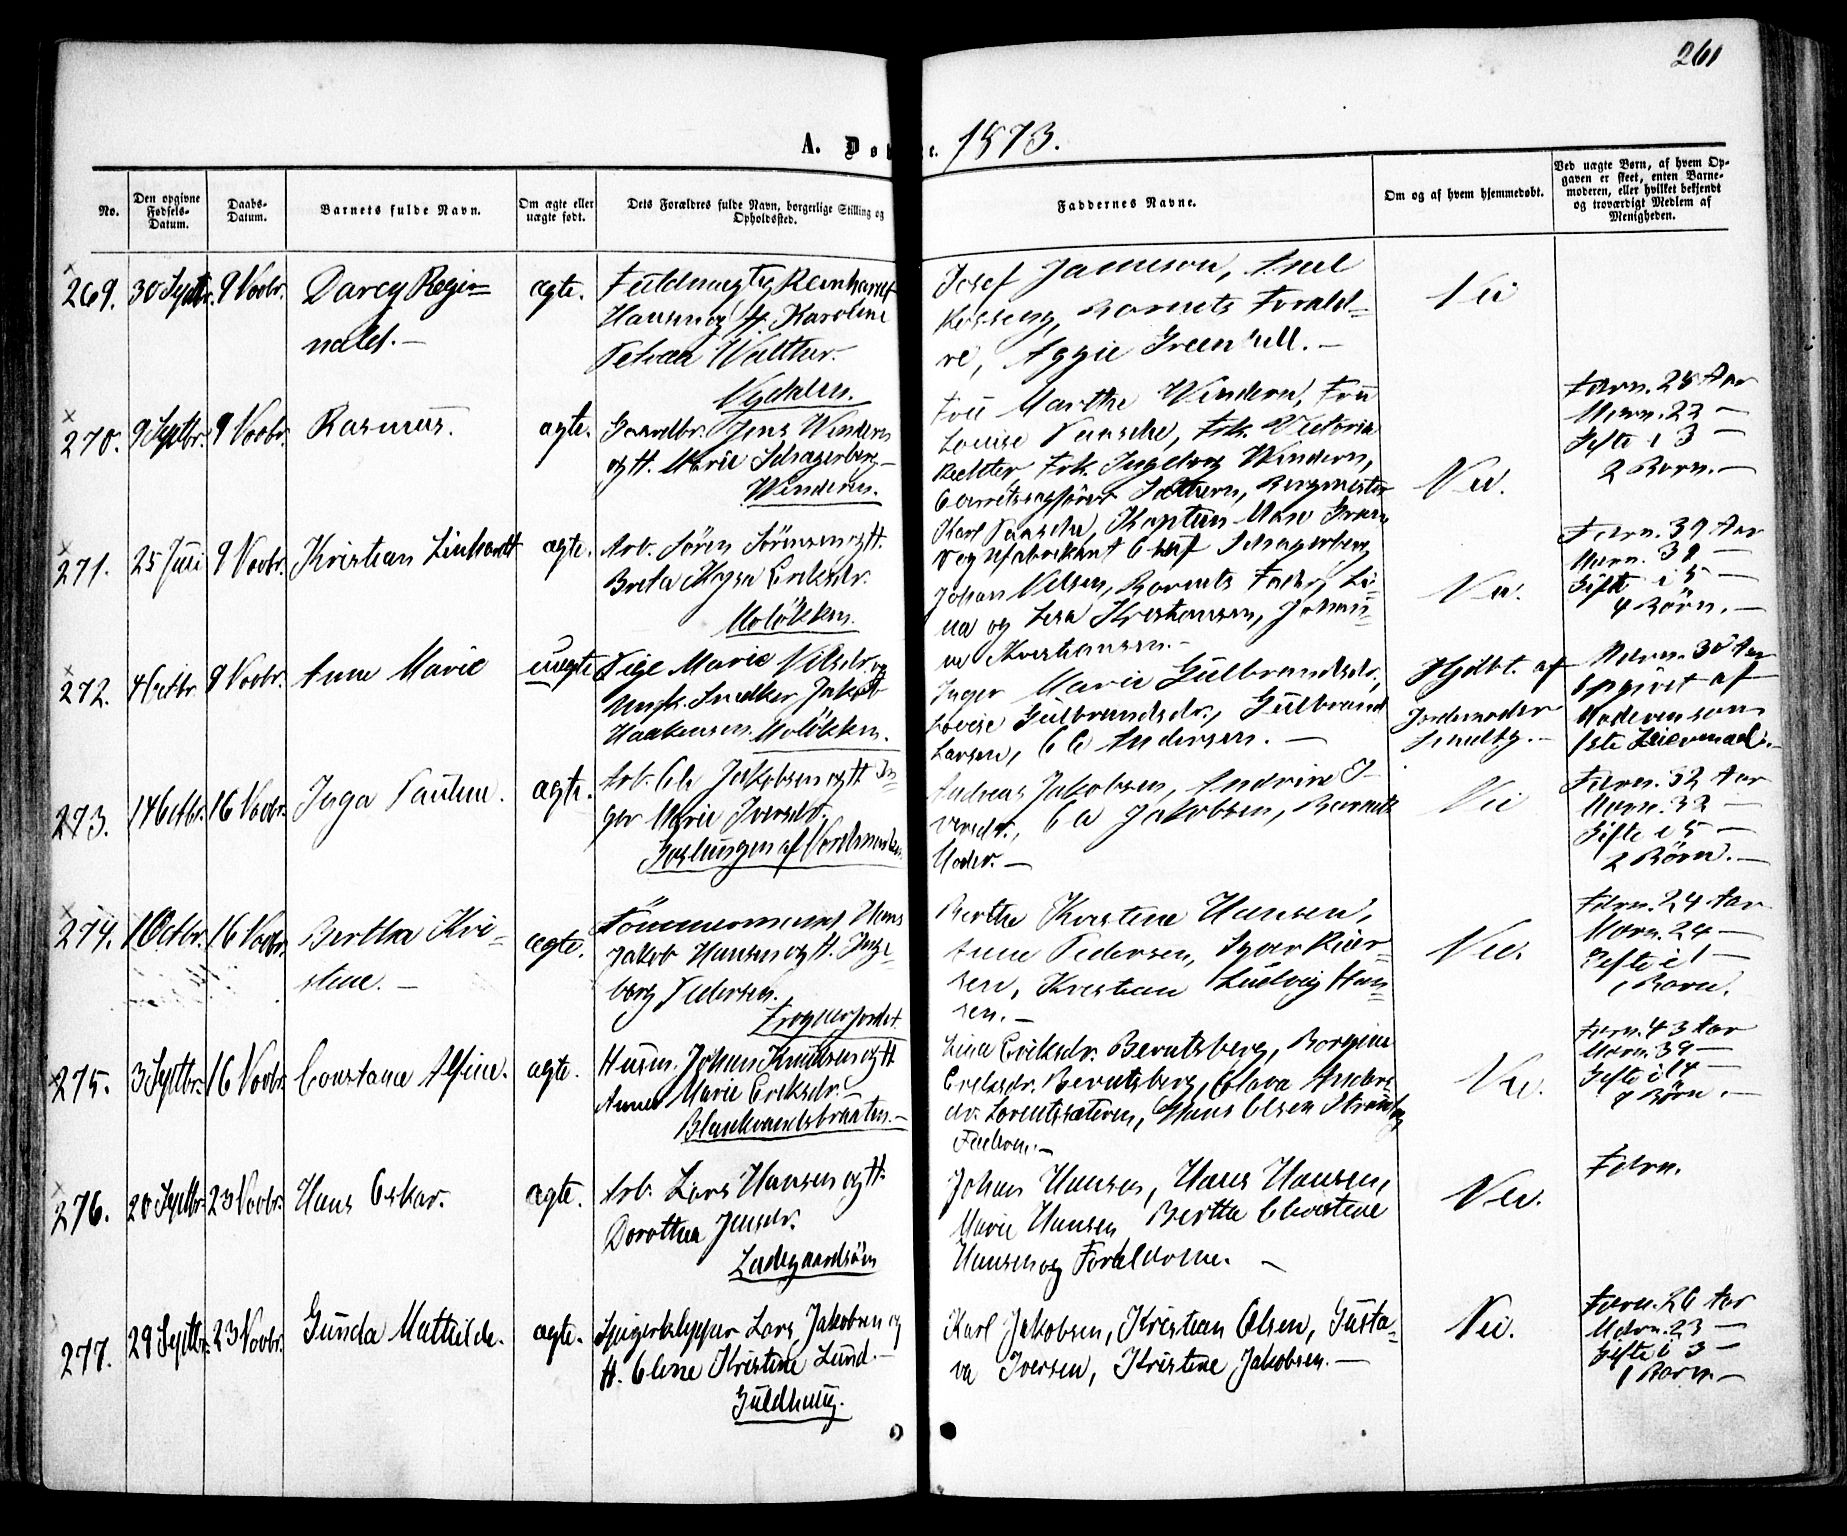 261
A. Døbte. 1873.
No.
Den opgivne Fødsels-Datum.
Daabs-Datum.
Barnets fulde Navn.
Om ægte eller uægte født.
Dets Forældres fulde Navn, borgerlige Stilling og Opholdssted.
Faddernes Navne.
Om og af hvem hjemmedøbt.
Ved uægte Børn, af hvem Opgaven er skeet, enten Barnemoderen, eller hvilket bekjendt og troværdigt Medlem af Menigheden.
269. 30 Septbr. 9 Novbr. Darcy Regi-
nald. —
ægte.
Fuldmægtig Reinhardt
Hansen og H. Karoline
Petrea Walther.
Nydalen.
Josef Jameson, Axel
Barnets Foræld-
re, Aggie Greenhill. —
Nei
270. 9 Septbr. 9 Novbr. Rasmus.
ægte.
Gaardbr. Jens Windern
og H. Marie Schagerberg —
Windern.
Fru Marthe Windern, Fru
Louise Paasche, Frk. Victoria
Richter, Frk. Ingeborg Windern,
Bergmester
Karl Paasche, Kaptein
og Fabrikant Oluf Schagerberg
Nei.
Færn. 28 Aar
Mærn. 23 —
Gifte i 3 —
2 Børn. —
271. 25 Juni 9 Novbr. Kristian Linhardt
ægte.
Arb. Sören Sörensen og H.
Breta Kysa Eriksdr.
Molökken.
Johan Nilsen, Barnets Fader, Li-
na og Lisa Kristiansen, Johan-
ne Kristiansen. —
Nei.
Færn. 39 Aar
Mærn. 39 —
Gifte i 5 —
4 Børn. —
272. 4 Octbr. 9 Novbr. Anne Marie
uægte
Pige Marie Nilsdr. og
Ungk. Snedker Jakob
Haakensen. Molökken.
Inger Marie Gulbrandsdr.,
Lovise Gulbrandsdr., Gulbrand
Larsen, Ole Andersen. —
Hjdbt. af
Jordemoder
Lundby. —
Mærn. 30 Aar
Opgivet af
Moderen som
1ste Leiermaal. —
273. 14 Octbr. 16 Novbr. Inga Pauline.
ægte.
Arb. Ole Jakobsen og H. In-
ger Marie Iversdt.
af Nordmarken.
Andreas Jakobsen, Andrine I-
versdr., Ole Jakobsen, Barnets
Moder. —
Nei
Færn. 32 Aar
Mærn. 32 —
Gifte i 5 —
2 Børn. —
274. 1 Octbr. 16 Novbr. Bertha Kri-
stine. —
ægte.
Tömmermand Hans
Jakob Hansen og H. Inge-
borg Pedersen.
Frognerjordet
Berthe Kristine Hansen,
Anne Pedersen,
sen, Kristian Ludvig Han-
sen. —
Nei.
Færn. 24 Aar
Mærn. 24 —
Gifte i 1 —
1 Barn.
275. 3 Septbr. 16 Novbr. Constance Alfine.
ægte.
Husm. Johan Knudsen og H.
Anne Marie Eriksdr. —
Blankvandsbraaten. —
Lina Eriksdr. Berntsberg, Borgine
Eriksdr. Berntsberg, Olava Anders-
dr. Lorentssæteren, Hans Olsen
Faderen. —
Nei.
Færn. 43 Aar
Mærn. 39 —
Gifte i 14 —
9 Børn. —
276. 20 Septbr. 23 Novbr. Hans Oskar.
ægte.
Arb. Lars Hansen og H.
Dorothea Jensdr.
Ladegaardsöen
Johan Hansen, Hans Hansen,
Marie Hansen Berthe Christine
Hansen og Forældrene. —
Nei.
Færn.
277. 29 Septbr. 23 Novbr. Gunda Mathilde.
ægte.
Spigerklipper Lars Jakobsen og
H. Oline Kristine Lund. —
Guldhaug.
Karl Jakobsen, Kristian Olsen, Gusta-
va Iversen, Kristine Jakobsen. —
Nei.
Færn. 26 Aar
Mærn. 23 —
Gifte i 3 —
1 Barn. —